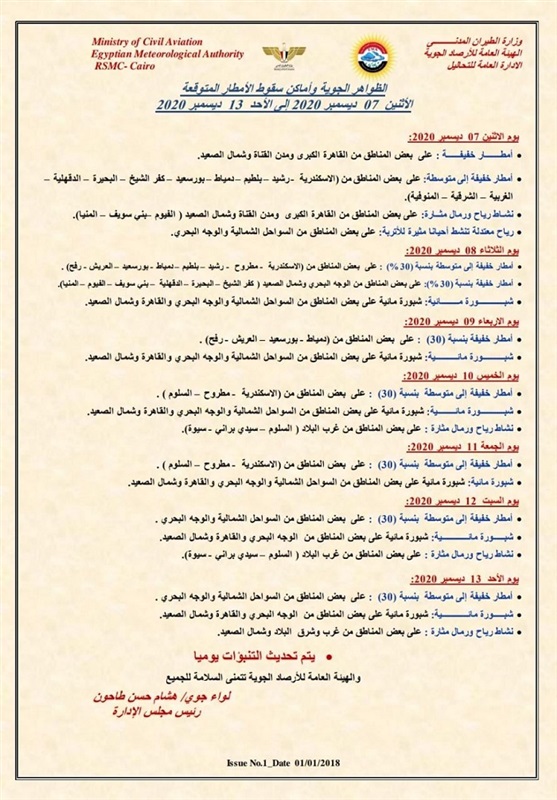 Ministry of Civil Aviation
Egyptian Meteorological Authority
RSMC- Cairo
وزارة الطيران المدنى
الهيئة العامة للأرصاد الجوية
الادارة العامة للتحاليل
الظواهر الجوية وأماكن سقوط الأمطار المتوقعة
الأثنين 07 ديسمبر 2020 إلى الأحد 13 ديسمبر 2020
يوم الاثنين 07 ديسمبر 2020:
• أمطار خفيفة : على بعض المناطق من القاهرة الكبرى ومدن القناة وشمال الصعيد.
• أمطار خفيفة إلى متوسطة: على بعض المناطق من (الاسكندرية - رشيد – بلطيم – دمياط – بورسعيد – كفر الشيخ – البحيرة – الدقهلية –
الغربية – الشرقية – المنوفية).
• نشاط رياح ورمال مثارة: على بعض المناطق من القاهرة الكبرى ومدن القناة وشمال الصعيد ( الفيوم –بني سويف – المنيا).
• رياح معتدلة تنشط أحيانا مثيرة للأتربة: على بعض المناطق من السواحل الشمالية والوجه البحري.
يوم الثلاثاء 08 ديسمبر 2020:
• أمطار خفيفة إلى متوسطة بنسبة (30 %) : على بعض المناطق من (الاسكندرية - مطروح – رشيد – بلطيم – دمياط – بورسعيد – العريش - رفح).
• أمطار خفيفة بنسبة (30 %): على بعض المناطق من الوجه البحري وشمال الصعيد ( كفر الشيخ – البحيرة – الدقهلية – بني سويف – الفيوم – المنيا).
• شبورة مائية: شبورة مائية على بعض المناطق من السواحل الشمالية والوجه البحري والقاهرة وشمال الصعيد.
يوم الاربعاء 09 ديسمبر 2020:
• أمطار خفيفة بنسبة (30) : على بعض المناطق من (دمياط - بورسعيد – العريش - رفح) .
• شبورة مائية: شبورة مائية على بعض المناطق من السواحل الشمالية والوجه البحري والقاهرة وشمال الصعيد.
يوم الخميس 10 ديسمبر 2020:
• أمطار خفيفة إلى متوسطة بنسبة (30) : على بعض المناطق من (الاسكندرية - مطروح – السلوم ) .
• شبورة مائية: شبورة مائية على بعض المناطق من السواحل الشمالية والوجه البحري والقاهرة وشمال الصعيد.
• نشاط رياح ورمال مثارة : على بعض المناطق من غرب البلاد ( السلوم – سيدي براني - سيوة).
يوم الجمعة 11 ديسمبر 2020:
• أمطار خفيفة إلى متوسطة بنسبة (30) : على بعض المناطق من (الاسكندرية - مطروح – السلوم ) .
• شبورة مائية: شبورة مائية على بعض المناطق من السواحل الشمالية والوجه البحري والقاهرة وشمال الصعيد.
يوم السبت 12 ديسمبر 2020:
• أمطار خفيفة إلى متوسطة بنسبة (30) : على بعض المناطق من السواحل الشمالية والوجه البحري .
• شبورة مائية: شبورة مائية على بعض المناطق من الوجه البحري والقاهرة وشمال الصعيد.
• نشاط رياح ورمال مثارة : على بعض المناطق من غرب البلاد ( السلوم – سيدي براني - سيوة).
يوم الأحد 13 ديسمبر 2020:
• أمطار خفيفة إلى متوسطة بنسبة (30) : على بعض المناطق من السواحل الشمالية والوجه البحري .
• شبورة مائية: شبورة مائية على بعض المناطق من الوجه البحري والقاهرة وشمال الصعيد.
• نشاط رياح ورمال مثارة : على بعض المناطق من غرب وشرق البلاد وشمال الصعيد.
• يتم تحديث التنبؤات يوميا
والهيئة العامة للأرصاد الجوية تتمنى السلامة للجميع
لواء جوي/ هشام حسن طاحون
رئيس مجلس الإدارة
Issue No.1_Date 01/01/2018